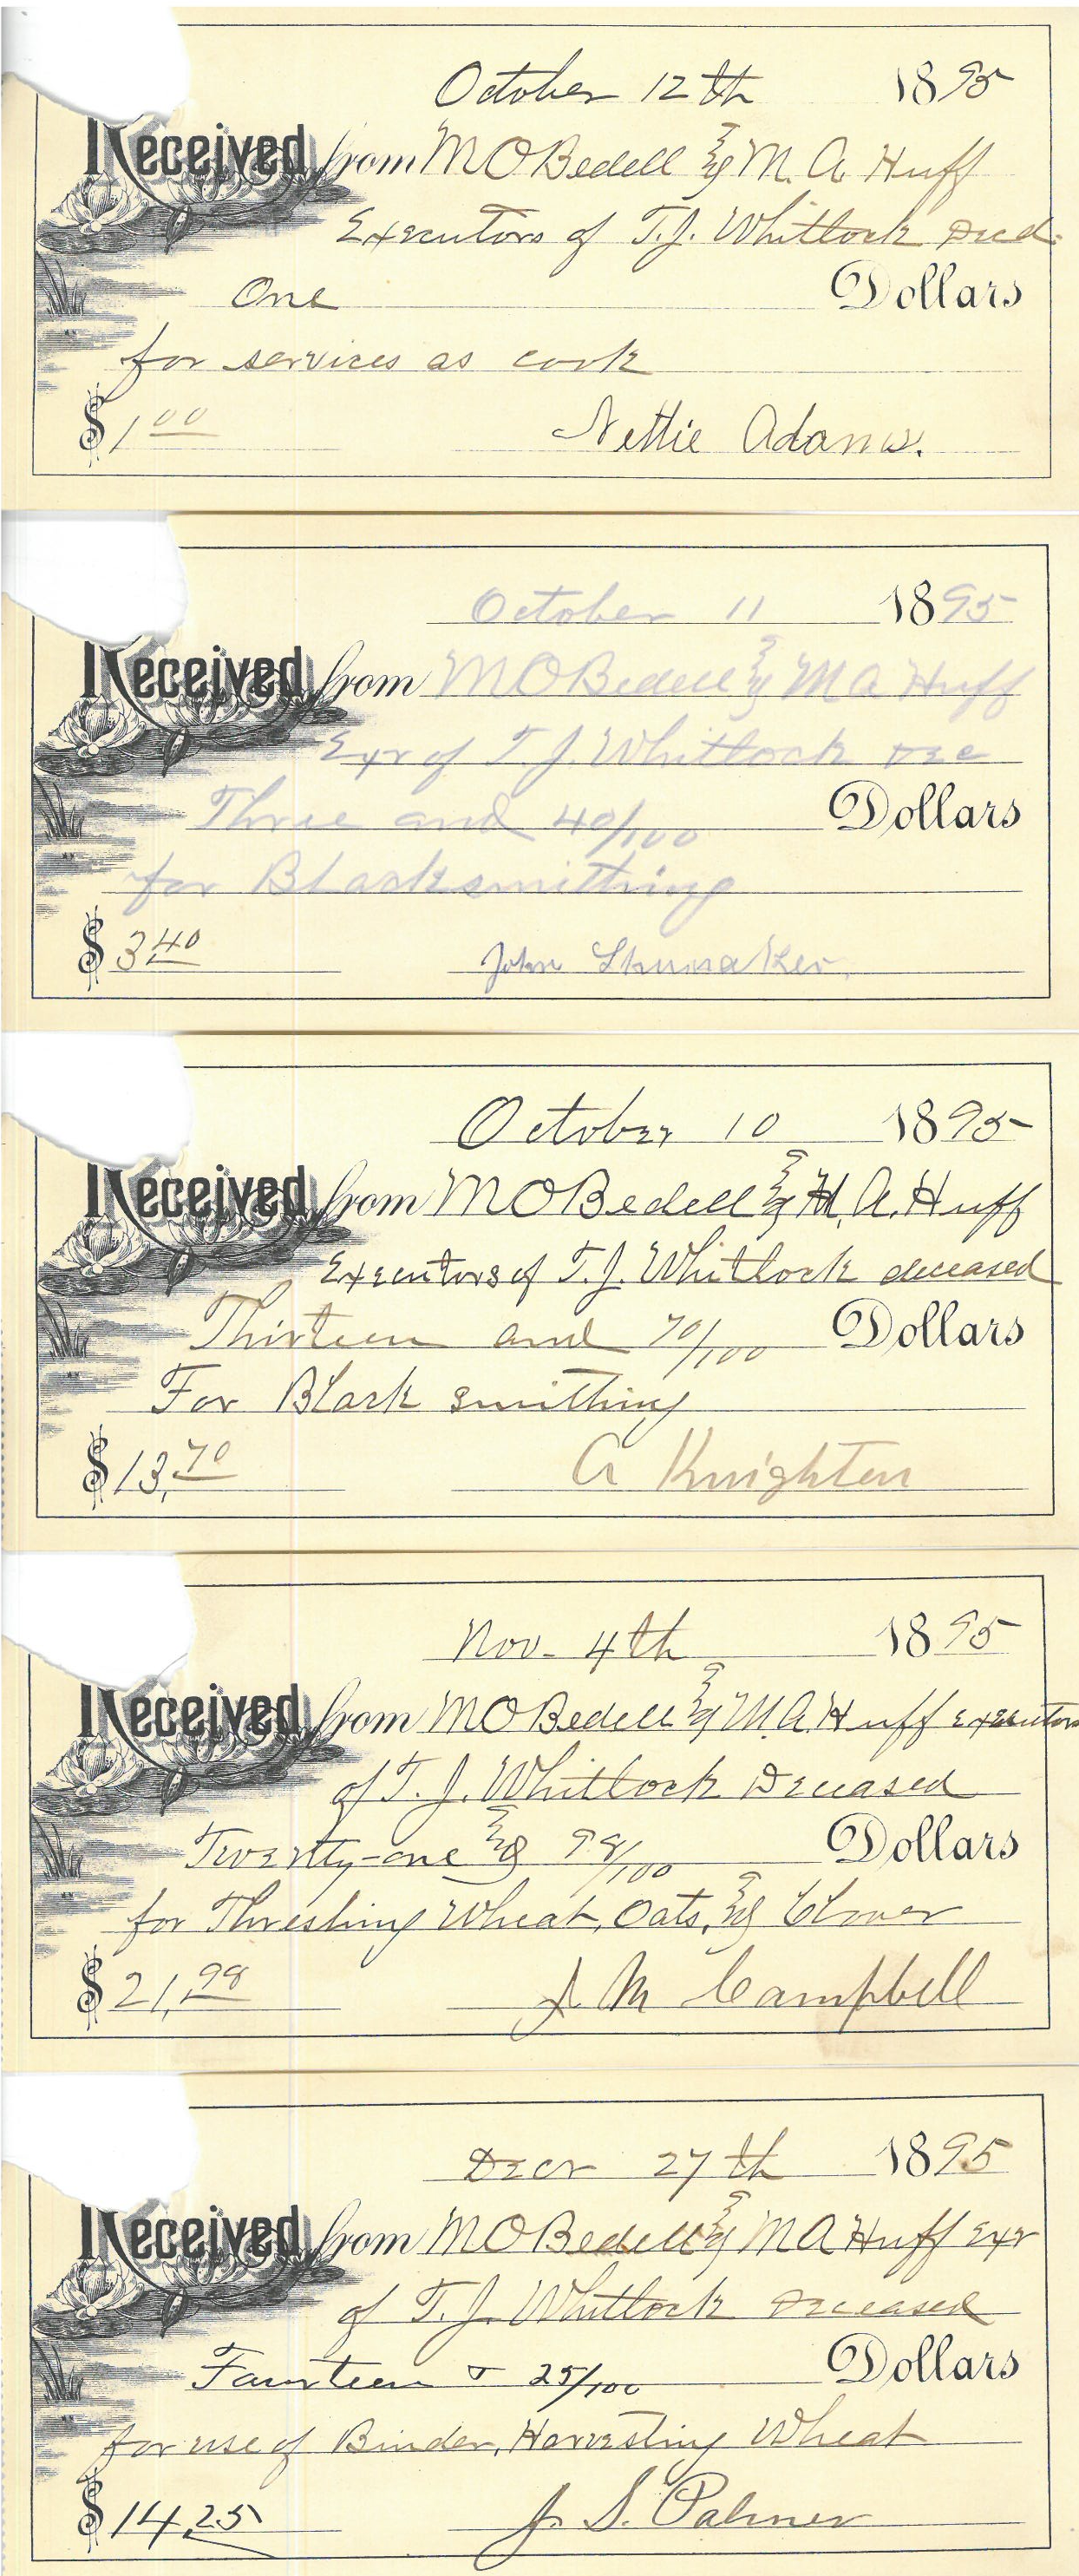 October 12th 1895
Received from M O Bedell & M. A Huff
Executors of T. J. Whitlock Decd.
One Dollars
for services as cook
$ 1 00 Nettie Adams.
October 11 1895
Received from M O Bedell & M A Huff
Exr of T. J. Whitlock Dec
Three and 40/100 Dollars
for Blacksmithing
$ 3 40 John Shumaker
October 10 1895
Received from M O Bedell & M. A. Huff
Executors of T. J. Whitlock deceased
Thirteen and 70/100 Dollars
For Black smithing
$ 13, 70 A Knighten
Nov. 4th 1895
Received from M O Bedell & M A Huff Executors
of T. J. Whitlock Deceased
Twenty-one & 98/100 Dollars
for Threshing Wheat, Oats, & Clover
$ 21, 98 J M Campbell
Decr 27th 1895
Received from M O Bedell & M A Huff Exr
of T. J. Whitlock Deceased
Fourteen & 25/100 Dollars
for use of Binder, Harvesting Wheat
$ 14,25 J. S. Palmer